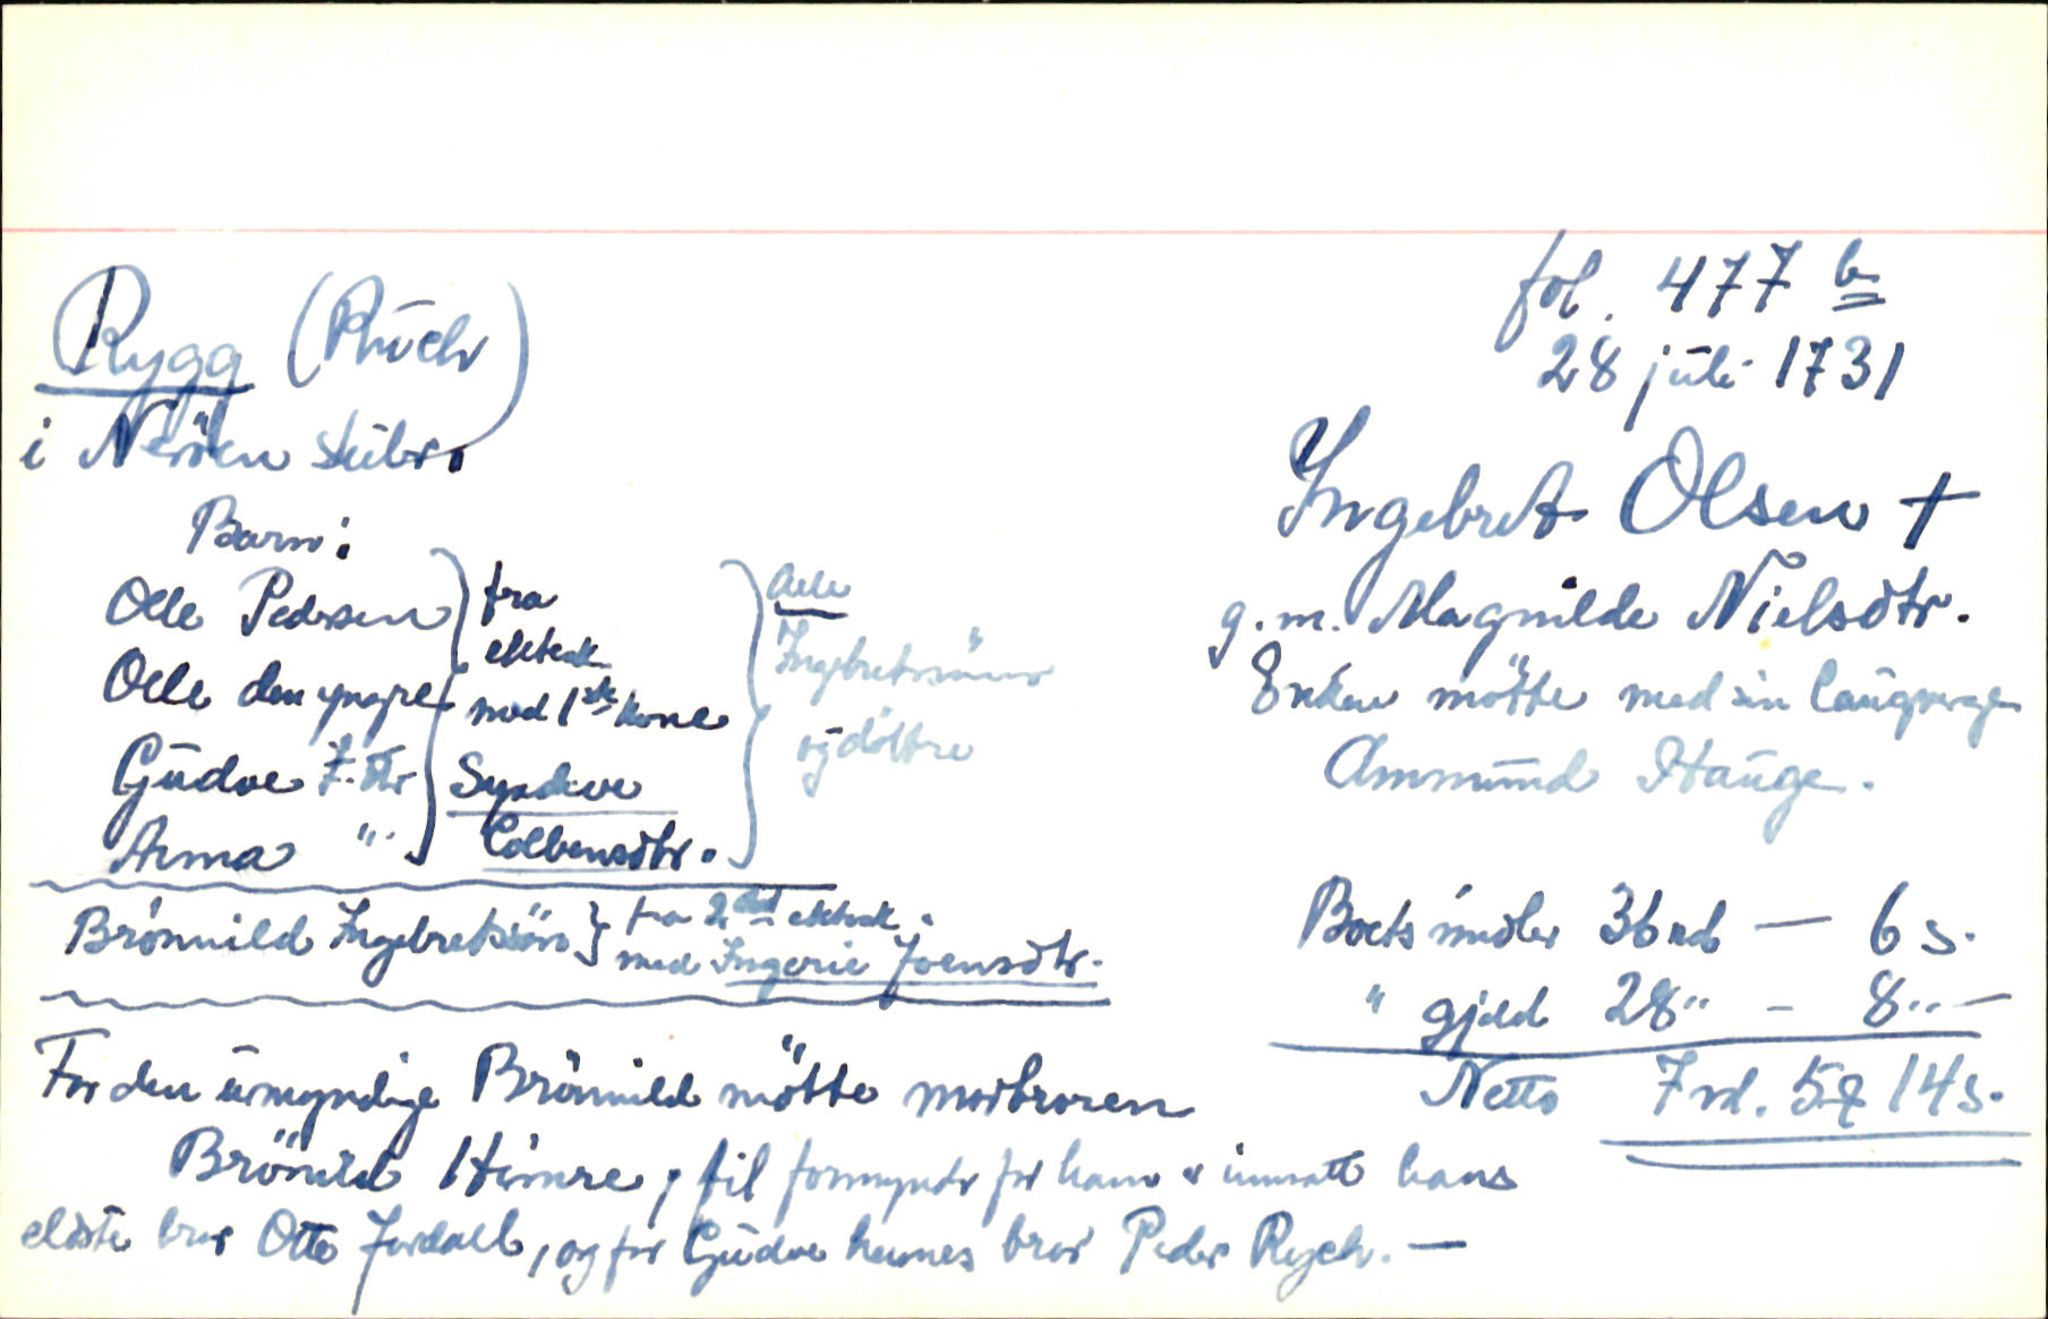 fol. 477 b
28 juli 1731
Rygg (Rüch)
i Neröen skibr.
Ingebret Olsen †
g. m. Magnilde Nielsdtr.
Enken mötte med sin laugverge
Ammund Hauge.
Barn:
Olle Pedersen
Olle den yngre
Gudve I. dtr
Anna "
fra
ektesk.
med 1ste kone
Syndeve
Colbensdtr.
Alle
Ingebretsönner
og döttre
Brönnild Ingebretssön } fra 2det ektesk.
med Ingerie Joensdtr.
Boets midler 36 rd — 6 s.
" gjeld 28 " - 8 " —
Netto 7 rd. 5 ƶ 14 s.
For den umyndige Brönnild mötte morbroren
Brönild Himre, til formyndr for ham er innsatt hans
eldste bror Otte Jordall, og for Gudve hennes bror Peder Rych. —